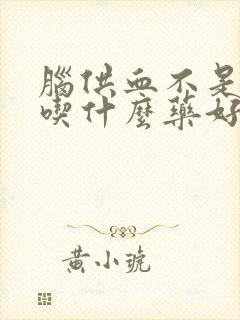 腦供血不是
喫什麼藥好
黃小琥